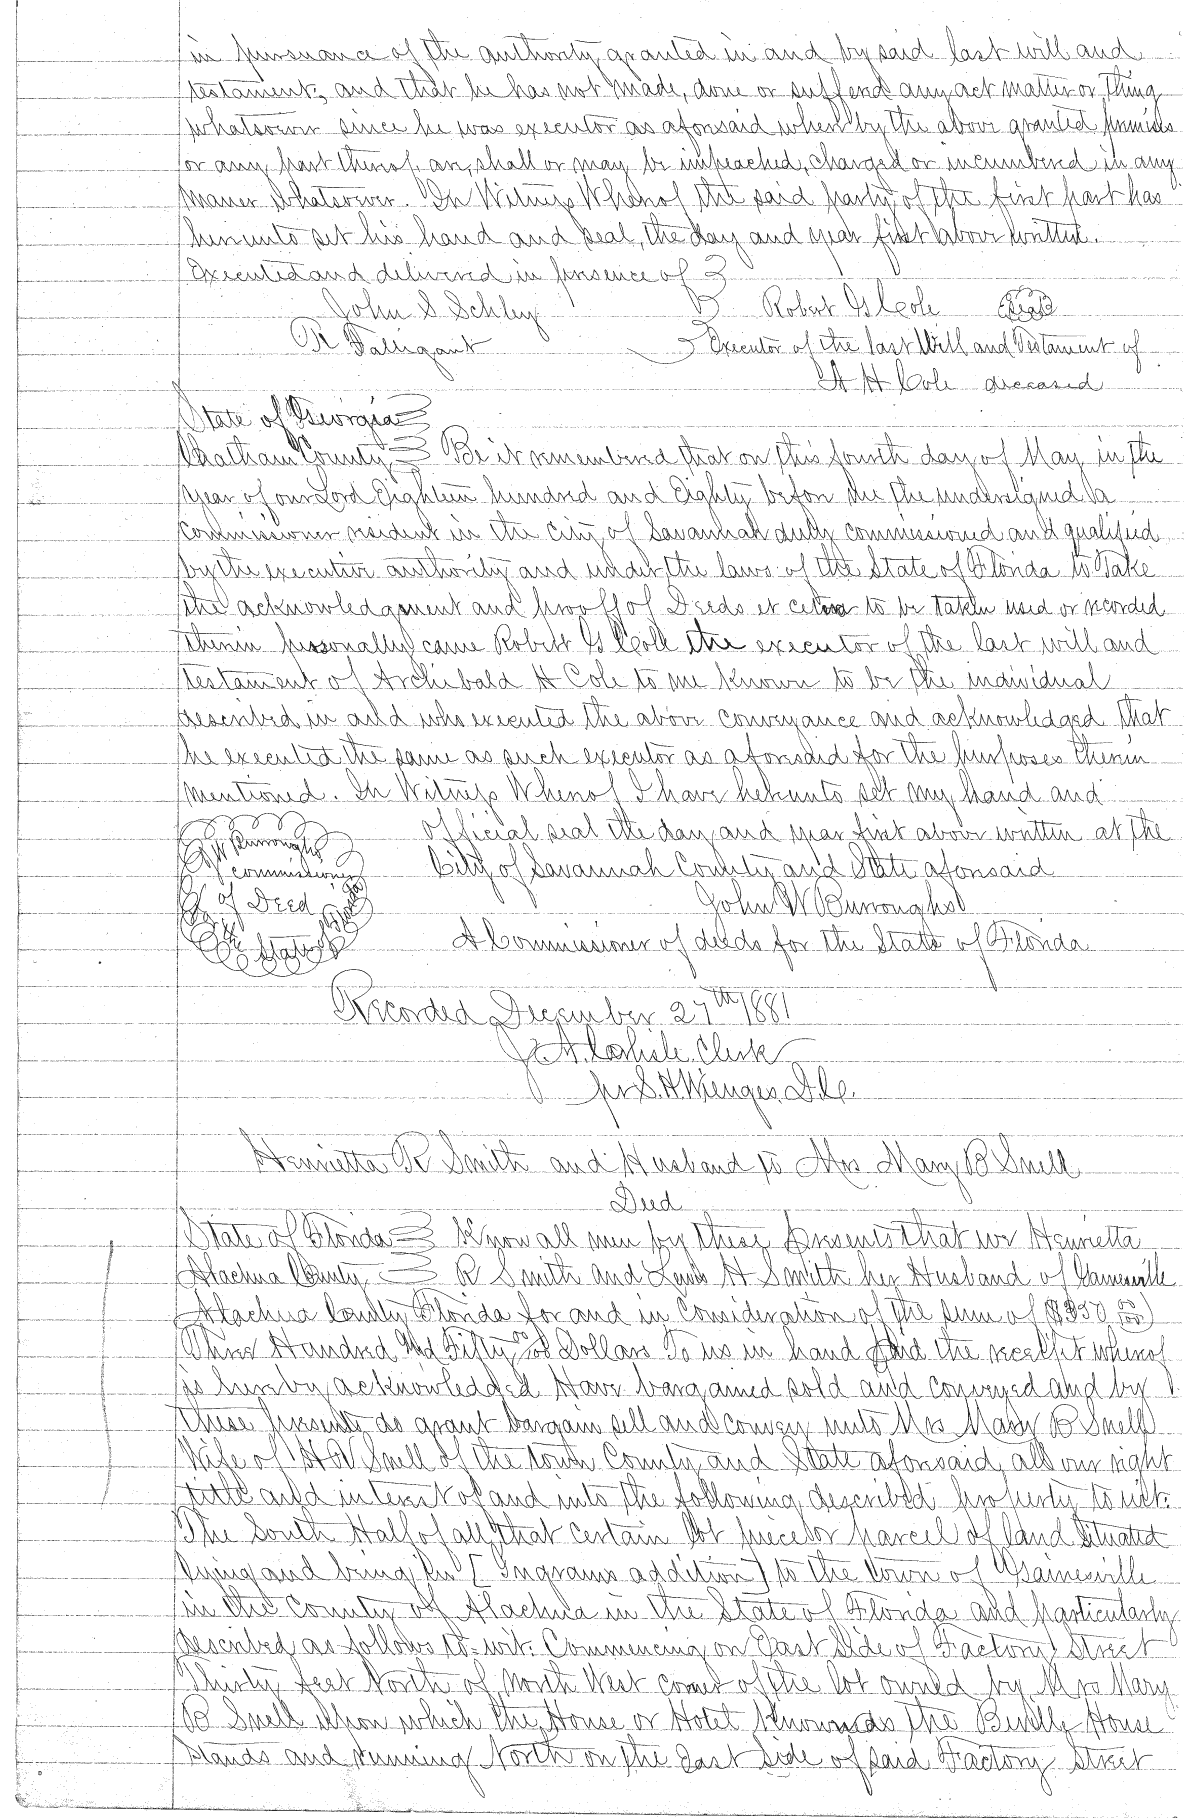 in pursuance of the authority granted in and by said last will and
testament, and that he has not made, done or suffered any act matter or thing
whatsoever since he was executor as aforesaid where by the above granted premises
or any part thereof, are, shall or may be impeached, charged or incumbered in any
maner whatsoever. In Witness Whereof the said party of the first part has
hereunto set his hand and seal, the day and year first above written.
Executed and delivered in presence of
John S Schley Robert G Cole Seal
R Falligant Executor of the last Will and Testament of
A H Cole deceased
State of Georgia
Chatham County Be it remembered that on this fourth day of May in the
year of our Lord Eighteen hundred and Eighty before me the undersigned a
commissioner resident in the city of Savannah duly commissioned and qualified
by the executive authority and under the laws of the State of Florida to take
the acknowledgment and proof of Deeds et cetera to be taken used or recorded
therein personally came Robert G Cole the executor of the last will and
testament of Archibald H Cole to me known to be the individual
described in and who executed the above conveyance and acknowledged that
he executed the same as such executor as aforesaid for the purposes therein
mentioned. In Witness Whereof I have hereunto set my hand and
official seal the day and year first above written at the
City of Savannah County and State aforesaid
J W Burroughs
commissioner
of Deed
for the
State of Florida
John W Burroughs
A Commissioner of deeds for the State of Florida
Recorded December 27th 1881
J A. Carlisle Clerk
pr S. H. Wienges D.C.
Henrietta R Smith and Husband to Mrs Mary B Snell
Deed
State of Florida Know all men by these presents that we Henrietta
Alachua County R Smith and Lewis H Smith her Husband of Gainesville
Alachua County Florida for and in consideration of the sum of ($350 00/100)
Three Hundred and Fifty 00/100 Dollars To us in hand paid the receipt whereof
is hereby acknowledged Have bargained sold and conveyed and by
these presents do grant bargain sell and convey unto Mrs Mary B Snell
Wife of H V Snell of the town County and State aforesaid, all our right
title and interest of and into the following described property to wit:
The South Half of all that certain lot piece or parcel of land Situated
lying and being in [Ingrams addition] to the town of Gainesville
in the County of Alachua in the State of Florida and particularly
described as follows to-wit: Commencing on East Side of Factory Street
Thirty feet North of North West corner of the lot owned by Mrs Mary
B Snell upon which the House or Hotel Known as the Beville House
stands and running North on the East Side of said Factory Street